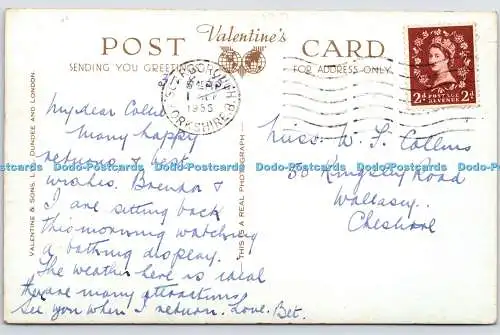 POST Valentine's CARD
SENDING YOU GREETINGS FOR ADDRESS ONLY
VALENTINE & SONS, LTD., DUNDEE AND LONDON.
THIS IS A REAL PHOTOGRAPH
1955
YORKSHIRE
2d POSTAGE REVENUE 2d
My dear Collie
Many happy
returns & best
wishes. Brenda &
I are sitting back
this morning watching
a bathing display.
The weather here is ideal
there are many attractions
See you when I return. Love. Bet.
Miss. W. S. Collins
58 Kingsley Road
Wallasey.
Cheshire
Dodo-Postcards Dodo-Postcards Dodo-Postcards Dodo-Postcards Dodo-Postcards